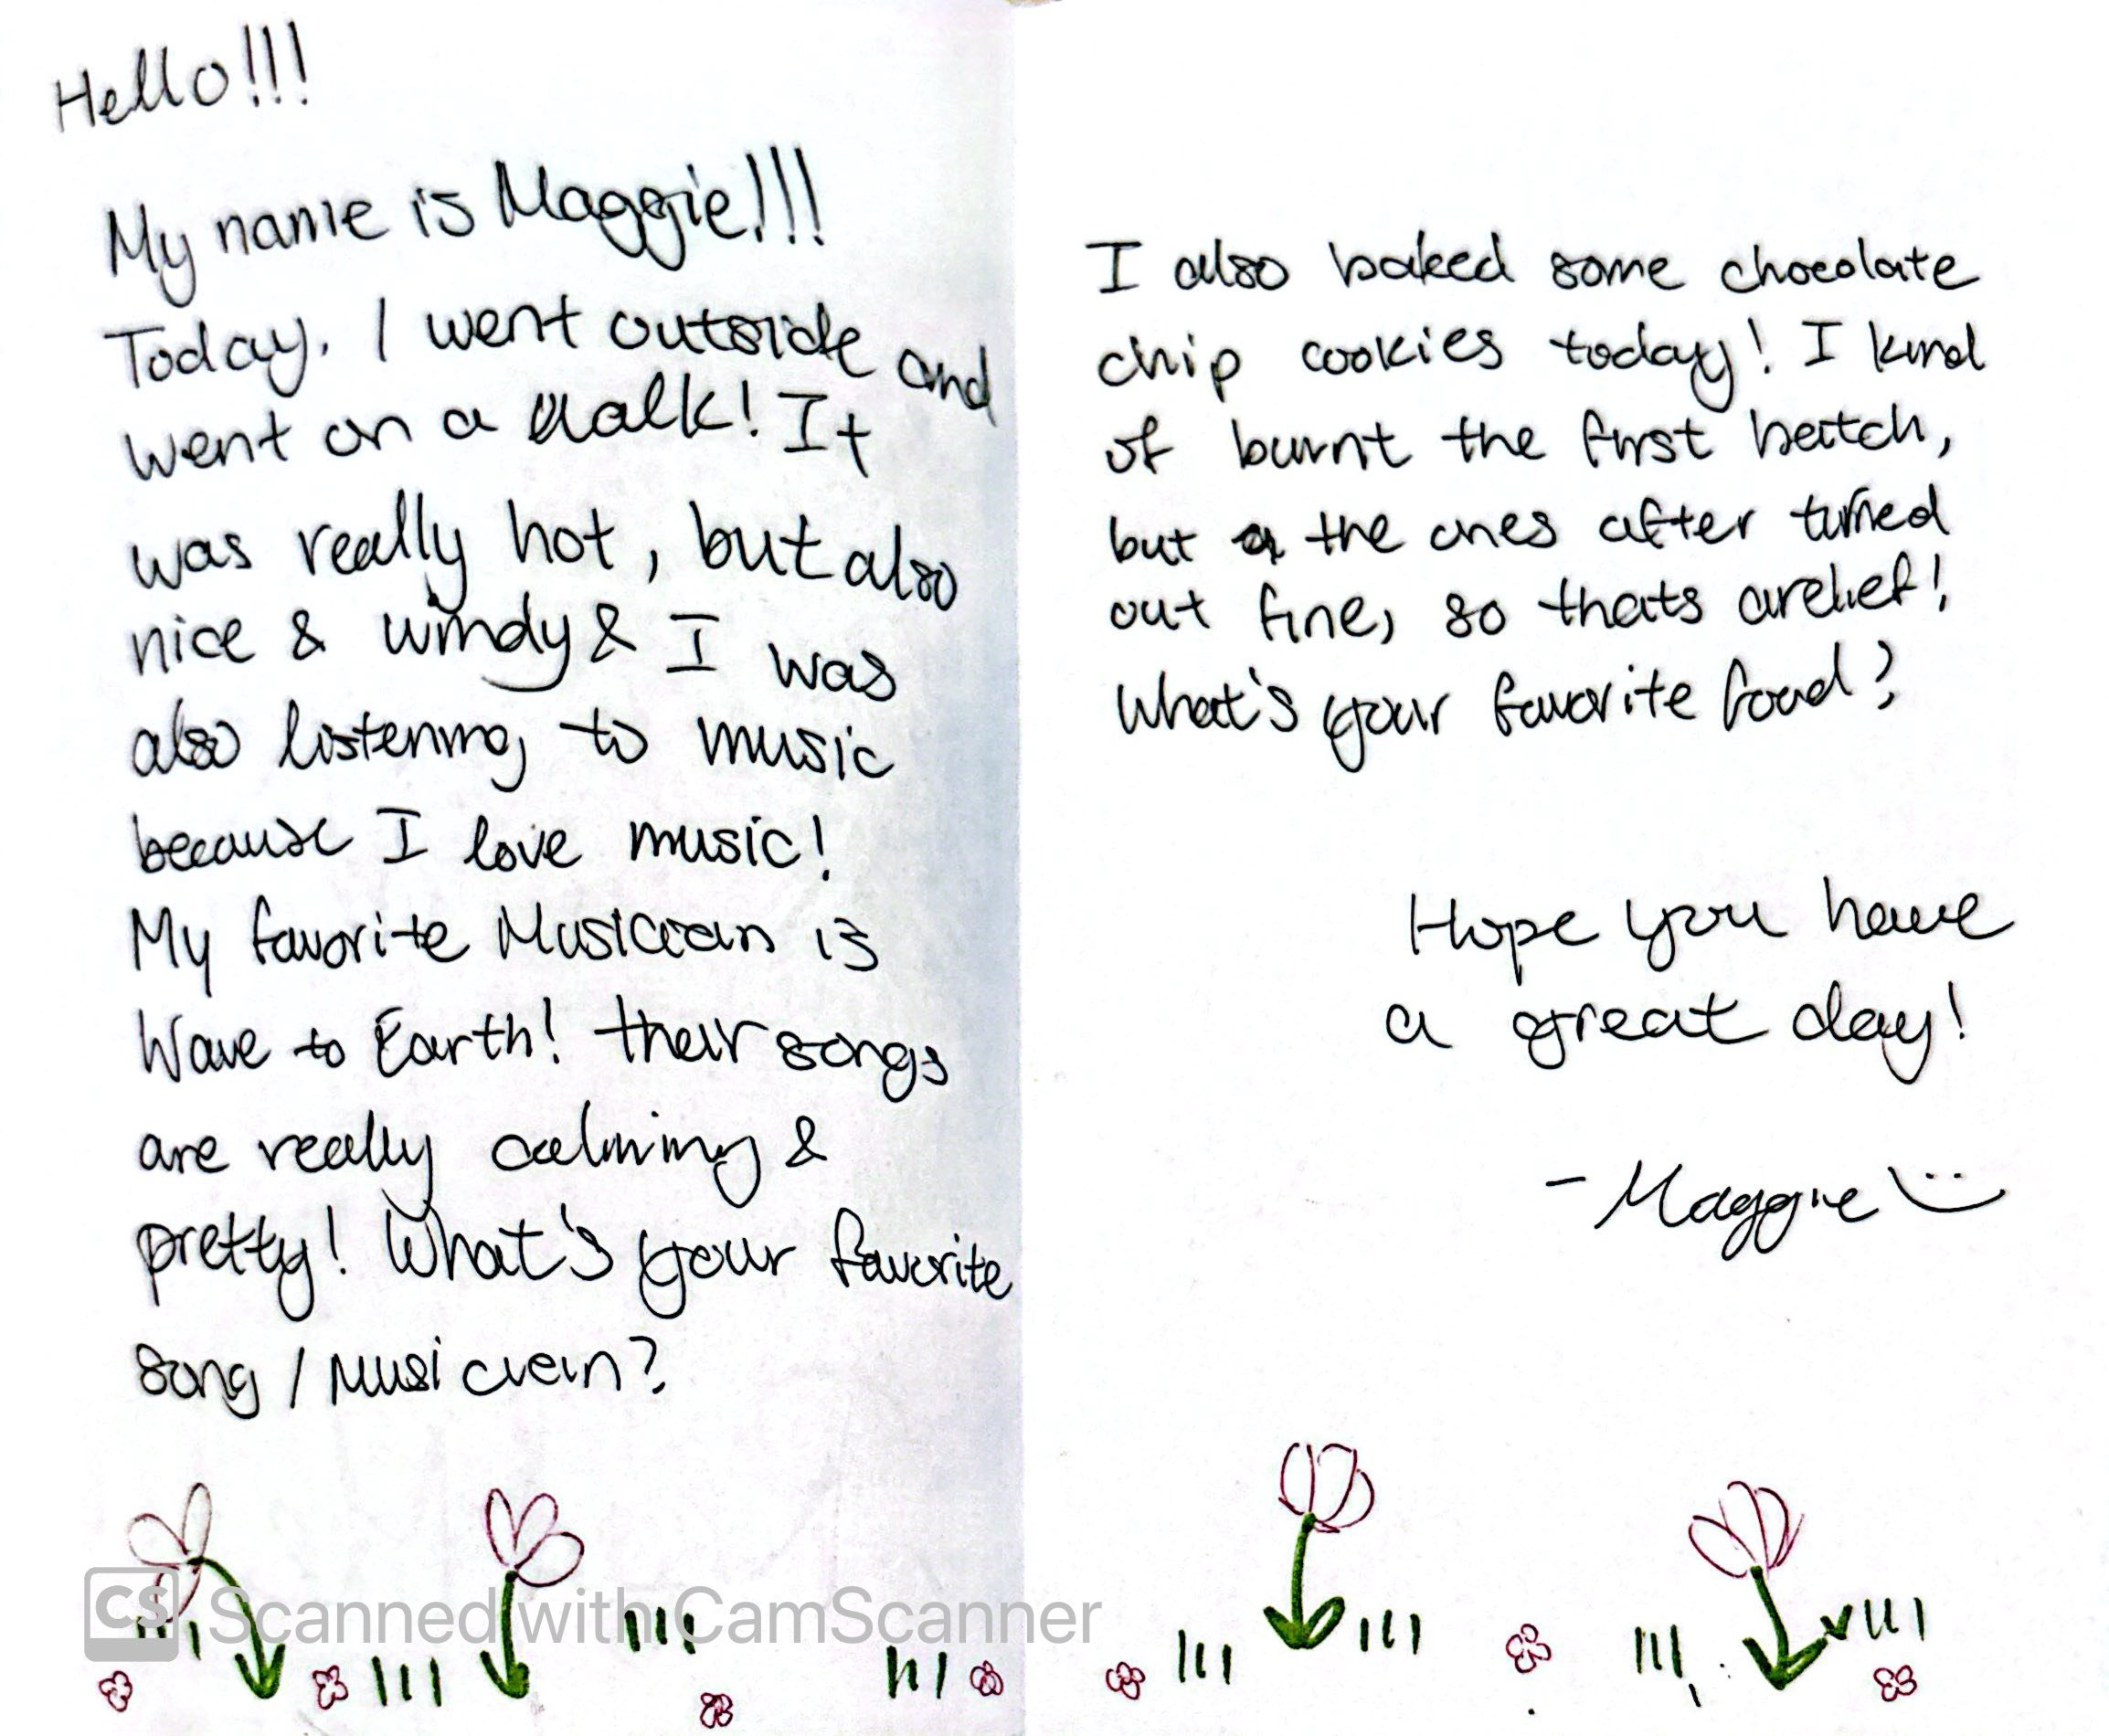 Hello!!!
My name is Maggie!!!
Today, I went outside and
went on a walk! It
was really hot, but also
nice & windy & I was
also listening to music
because I love music!
My favorite Musician is
Wave to Earth! their songs
are really calming &
pretty! What's your favorite
song / musician?
I also baked some chocolate
chip cookies today! I kind
of burnt the first batch,
but the ones after turned
out fine, so thats a relief!
What's your favorite food?
Hope you have
a great day!
- Maggie :)
CS Scanned with CamScanner